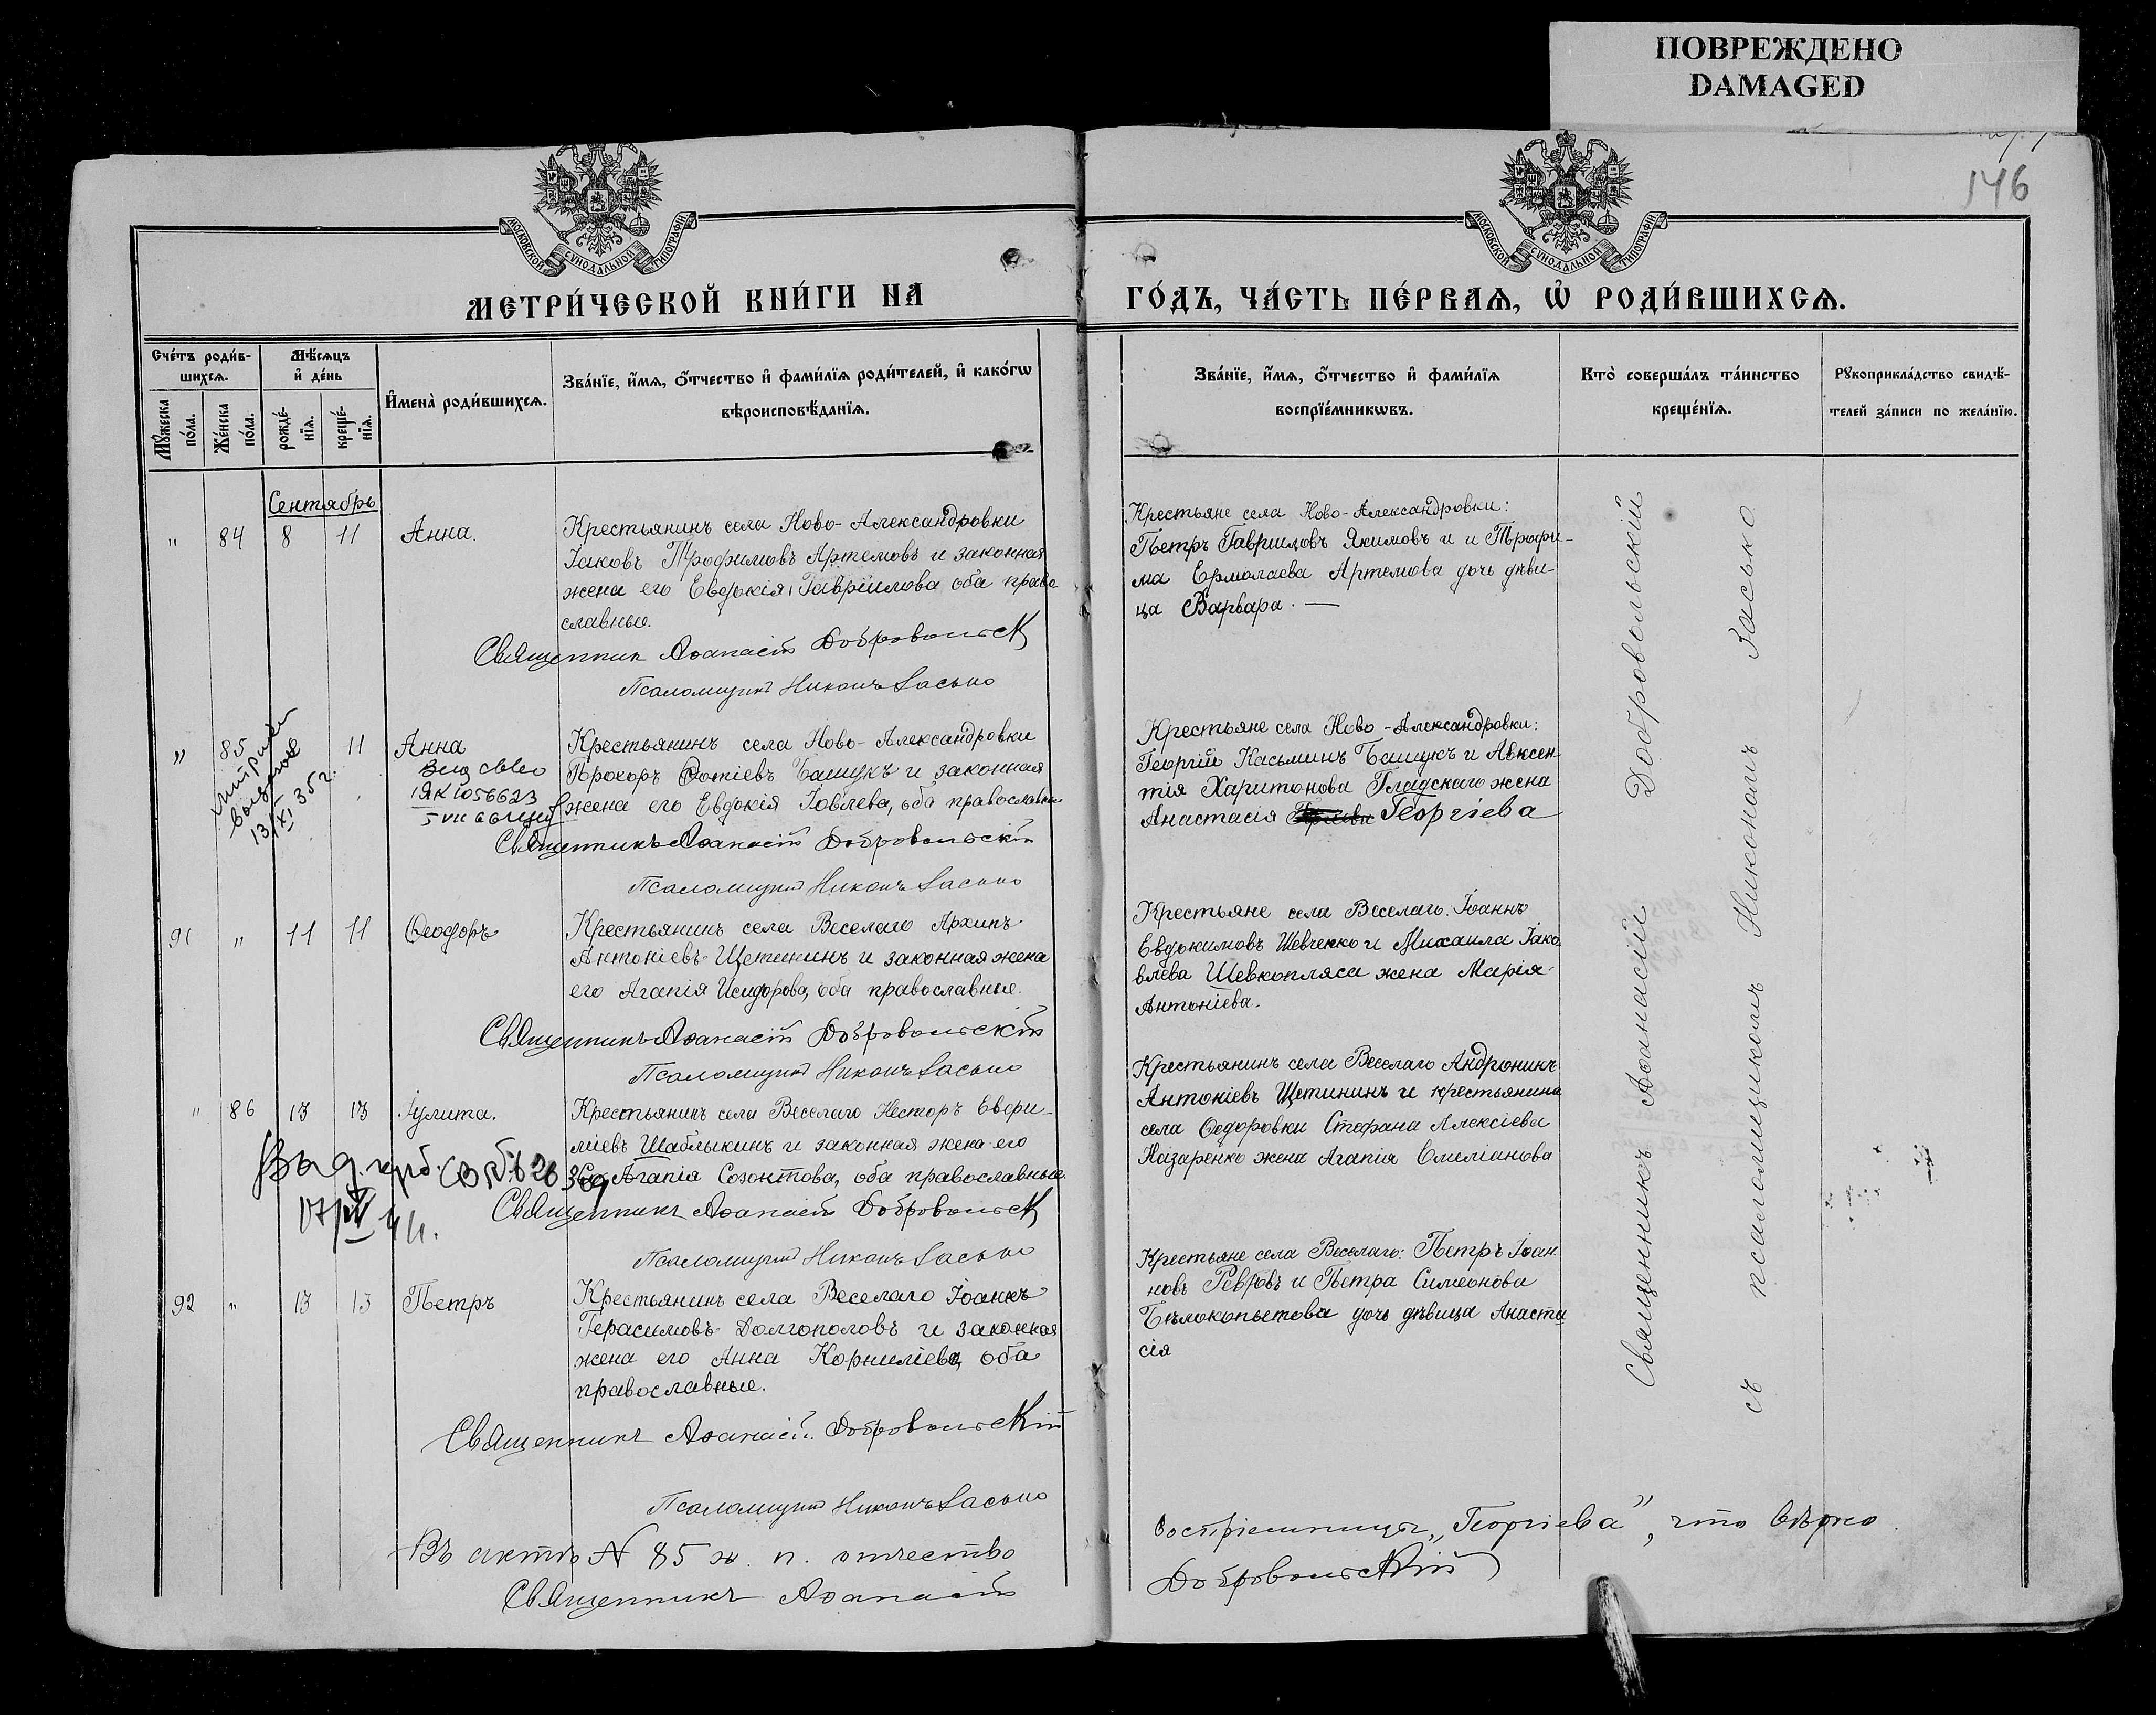 ПОВРЕЖДЕНО
DAMAGED
146
МОСКОВСКОЙ СѴНОДАЛЬНОЙ ТИПОГРАФІИ
МОСКОВСКОЙ СѴНОДАЛЬНОЙ ТИПОГРАФІИ
МЕТРИ́ЧЕСКОЙ КНИ́ГИ НА
ГО́ДЪ, ЧА́СТЬ ПЕ́РВАѦ, Ѡ҆ РОДИ́ВШИХСѦ.
Сче́тъ роди́в-
шихсѧ.
Мѣ́сѧцъ
и҆ де́нь
Мꙋ́жеска
по́ла.
Же́нска
по́ла.
рожде́-
нїѧ.
креще́-
нїѧ.
И҆мена̀ роди́вшихсѧ.
Зва́нїе, и҆́мѧ, ѻ҆́тчество и҆ фами́лїѧ роди́телей, и҆ како́гѡ
вѣроисповѣ́данїѧ.
Зва́нїе, и҆́мѧ, ѻ҆́тчество и҆ фами́лїѧ
воспрїе́мникѡвъ.
Кто̀ соверша́лъ та́инство
креще́нїѧ.
Рꙋкоприкла́дство свидѣ́-
телей за́писи по жела́нїю.
Сентябрь
" 84 8 11 Анна.
Крестьянинъ села Ново-Александровки
Іаковъ Трофимовъ Артемовъ и законная
жена его Евдокія Гавріилова, оба право-
славные.
Священник Аѳанасій Добровольск
Псаломщикъ Никонъ Засько
Крестьяне села Ново-Александровки:
Петръ Гавриловъ Якимовъ и и Трофи-
ма Ермолаева Артемова дочь дѣви-
ца Варвара. —
" 85 11 Анна
13/XI 35 г.
ЯК 1056623
Крестьянинъ села Ново-Александровки
Прохоръ Фотіевъ Башукъ и законная
жена его Евдокія Іовлева, оба православные
Священникъ Аѳанасій Добровольскій
Псаломщикъ Никонъ Засько
Крестьяне села Ново-Александровки:
Георгій Касьминъ Башукъ и Авксен-
тія Харитонова Гладскаго жена
Анастасія Георгіева
91 " 11 11 Ѳеодоръ
Крестьянинъ села Веселаго Архипъ
Антоніевъ Щетининъ и законная жена
его Агапія Исидорова, оба православные.
Священникъ Аѳанасій Добровольскій
Псаломщикъ Никонъ Засько
Крестьяне села Веселаго: Іоаннъ
Евдокимовъ Шевченко и Михаила Іако-
влева Шевкопляса жена Марія
Антоніева.
" 86 13 13 Іулита.
Крестьянинъ села Веселаго Несторъ Евфи-
міевъ Шаблыкинъ и законная жена его
Агапія Созонтова, оба православные.
Священникъ Аѳанасій Добровольск
Псаломщикъ Никонъ Засько
Крестьянинъ села Веселаго Андроникъ
Антоніевъ Щетининъ и крестьянина
села Ѳедоровки Стефана Алексіева
Назаренко жена Агапія Емеліанова
92 " 13 13 Петръ
Крестьянинъ села Веселаго Іоаннъ
Герасимовъ Долгополовъ и законная
жена его Анна Корниліева, оба
православные.
Священникъ Аѳанасій Добровольскій
Псаломщикъ Никонъ Засько
Крестьяне села Веселаго: Петръ Іоан-
новъ Ревровъ и Петра Симеонова
Бѣлокопытова дочь дѣвица Анаста
сія
Священникъ Аѳанасій Добровольскій
съ псаломщикомъ Никономъ Засько
Въ актѣ № 85 ж. п. отчество
воспріемницы „Георгіева", что вѣрно
Священникъ Аѳанасій
Добровольскій